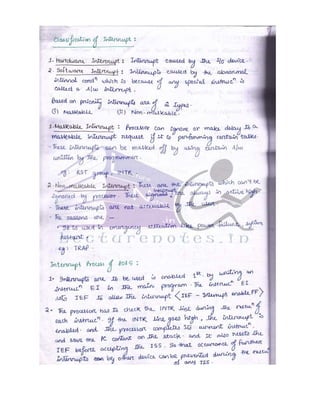 Classification of Interrupt :
1. Hardware Interrupt : Interrupt caused by the I/O device.
2. Software Interrupt : Interrupts caused by the abnormal
internal condn which is because of any special instrucn is
called a s/w interrupt.
Based on priority interrupts are of 2 types.
(i) Maskable (ii) Non-maskable.
1. Maskable Interrupt : Processor can ignore or make delay to a
maskable interrupt request if it is performing certain tasks.
- These interrupts can be masked off by using certain s/w
written by the programmer.
eg: RST group, INTR
2. Non-maskable Interrupt : These are the interrupts which can't be
ignored by processor. These interrupt is always in active high.
- These interrupts are not accessible by the user.
- The reasons are —
- It is used in emergency situation like power failure, system
Lecturenotes.in
eg: TRAP.
Interrupt Process of 8085 :
1- Interrupts are to be used is enabled 1st by writing an
instrucn EI in the main program. The instrucn EI
sets IEF to allow the interrupt <IEF - Interrupt enable FF>
2- The processor has to check the INTR line during the execun of
each instrucn. If the INTR line goes high, the interrupt is
enabled. and the processor completes its current instrucn.
and save the PC content on the stack. and it also resets the
IEF before accepting the ISS. So that occurance of further
interrupts can by other device can be prevented during the execun
of any ISS.